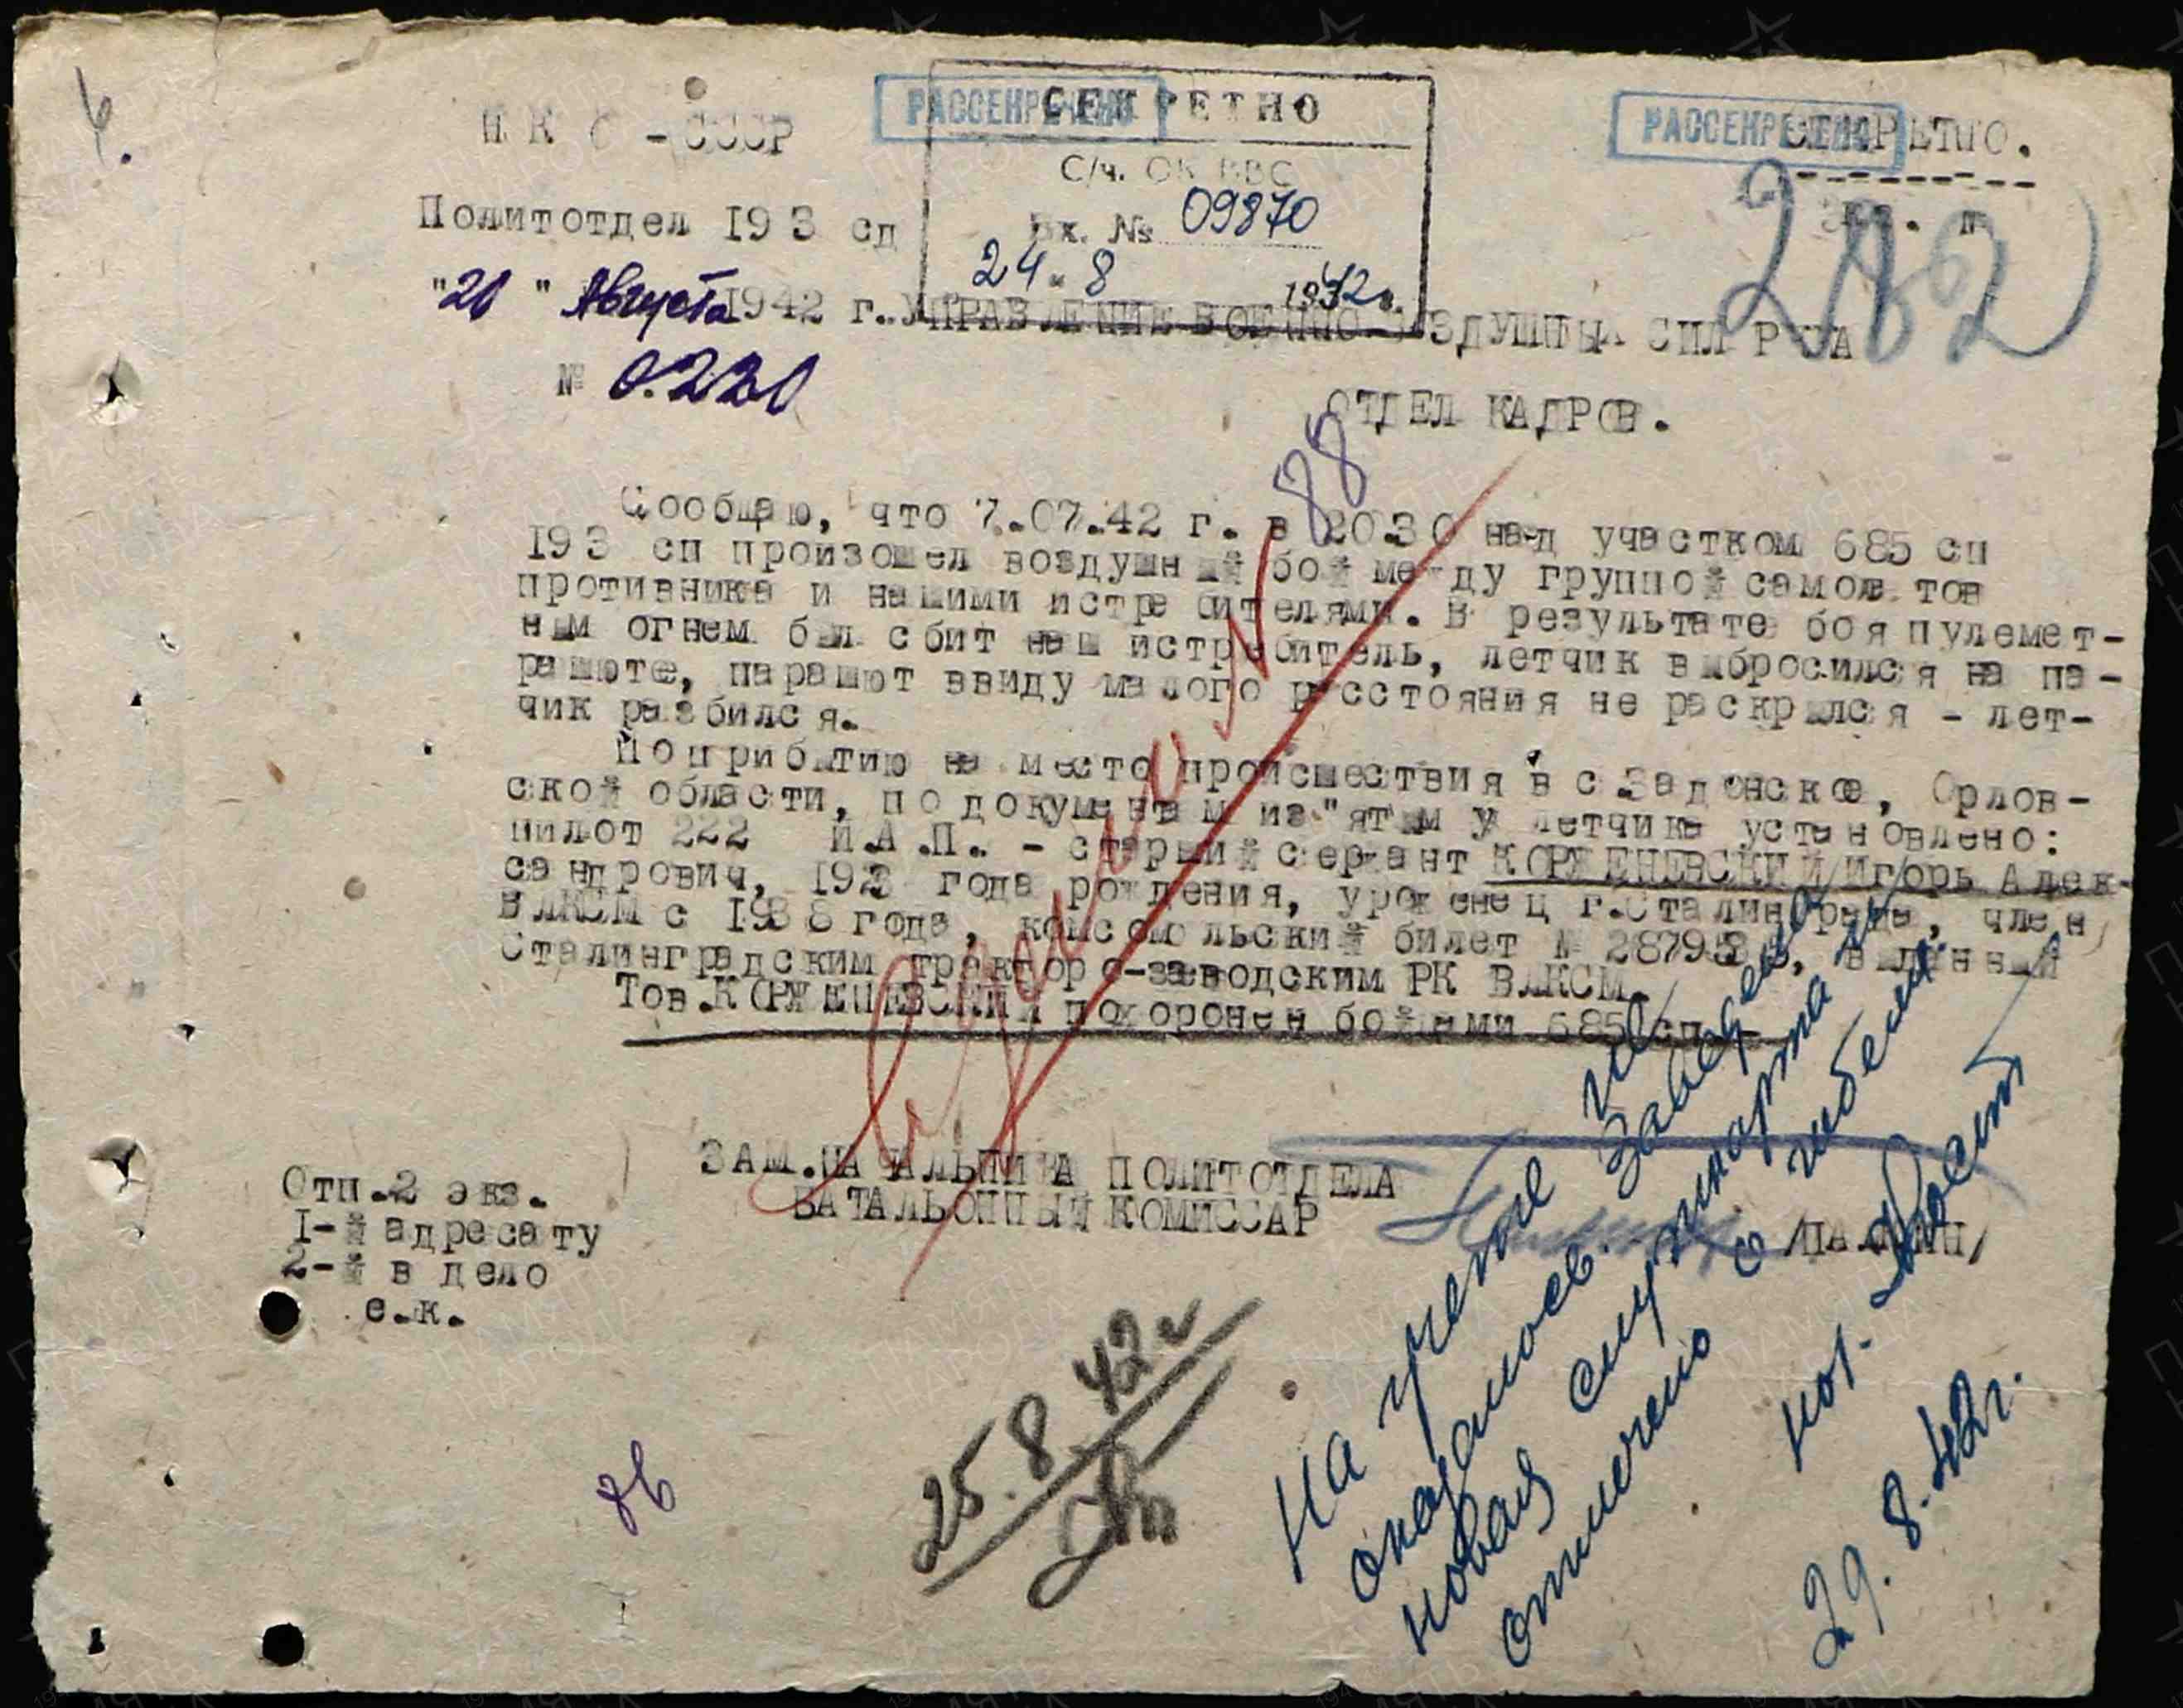 НКО - СССР
Политотдел 193 сд
"21" Августа 1942 г.
№ 0.221
РАССЕКРЕЧЕНО
СЕКРЕТНО
С/ч. ОК ВВС
Вх. № 09870
24. 8 1942г.
РАССЕКРЕЧЕНО
СЕКРЕТНО.
282
УПРАВЛЕНИЕ ВОЕННО-ВОЗДУШНЫХ СИЛ РККА
ОТДЕЛ КАДРОВ.
88
Сообщаю, что 7.07.42 г. в 20.30 над участком 685 сп
193 сп произошел воздушный бой между группой самолетов
противника и нашими истребителями. В результате боя пулемет-
ным огнем был сбит наш истребитель, летчик выбросился на па-
рашюте, парашют ввиду малого расстояния не раскрылся - лет-
чик разбился.
По прибытию на место происшествия в с Задонское, Орлов-
ской области, по документам из"ятым у летчика установлено:
пилот 222 И.А.П. - старший сержант КОРЖЕНЕВСКИЙ Игорь Алек-
сандрович, 1923 года рождения, уроженец г.Сталинграда, член
ВЛКСМ с 1938 года, комсомольский билет № выданный
Сталинградским тракторо-заводским РК ВЛКСМ.
Тов.КОРЖЕНЕВСКИЙ похоронен бойцами 685 сп.
ЗАМ.НАЧАЛЬНИКА ПОЛИТОТДЕЛА
БАТАЛЬОННЫЙ КОМИССАР
Отп.2 экз.
1-й адресату
2-й в дело
е.к.
25.8 42г
На учете не
оказалось. Заведена
новая служ карта и
отмечено о гибели.
29.8.42г.